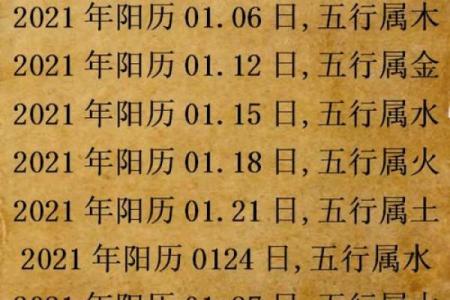 2021年阳历01.06日,五行属木
2021年阳历01.12日,五行属金
2021年阳历01.15日,五行属水
2021年阳历01.18日,五行属火
2021年阳历01.21日,五行属土
2021年阳历0124日,五行属水
2021年阳历01.27日,五行属